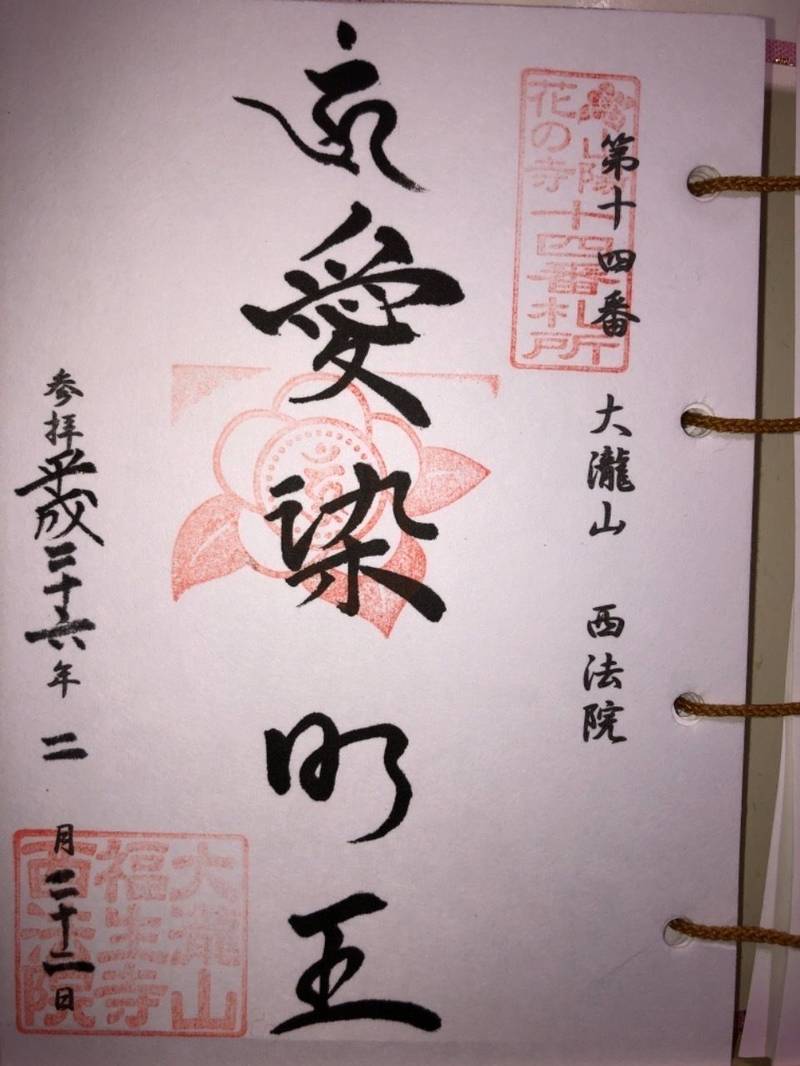 第十四番 大瀧山 西法院
山陽
花の寺
十四番札所
愛染明王
参拝平成二十六年二月二十二日
大瀧山
福生寺
西法院